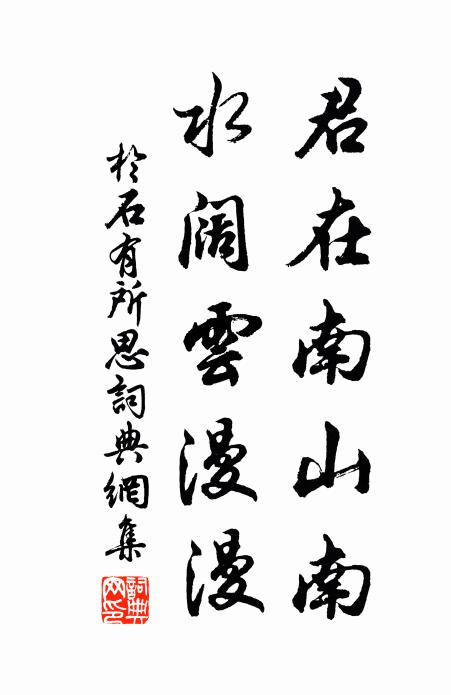 君在南山南
水阔雲漫漫
於石有所思詞典網集
詞典網印